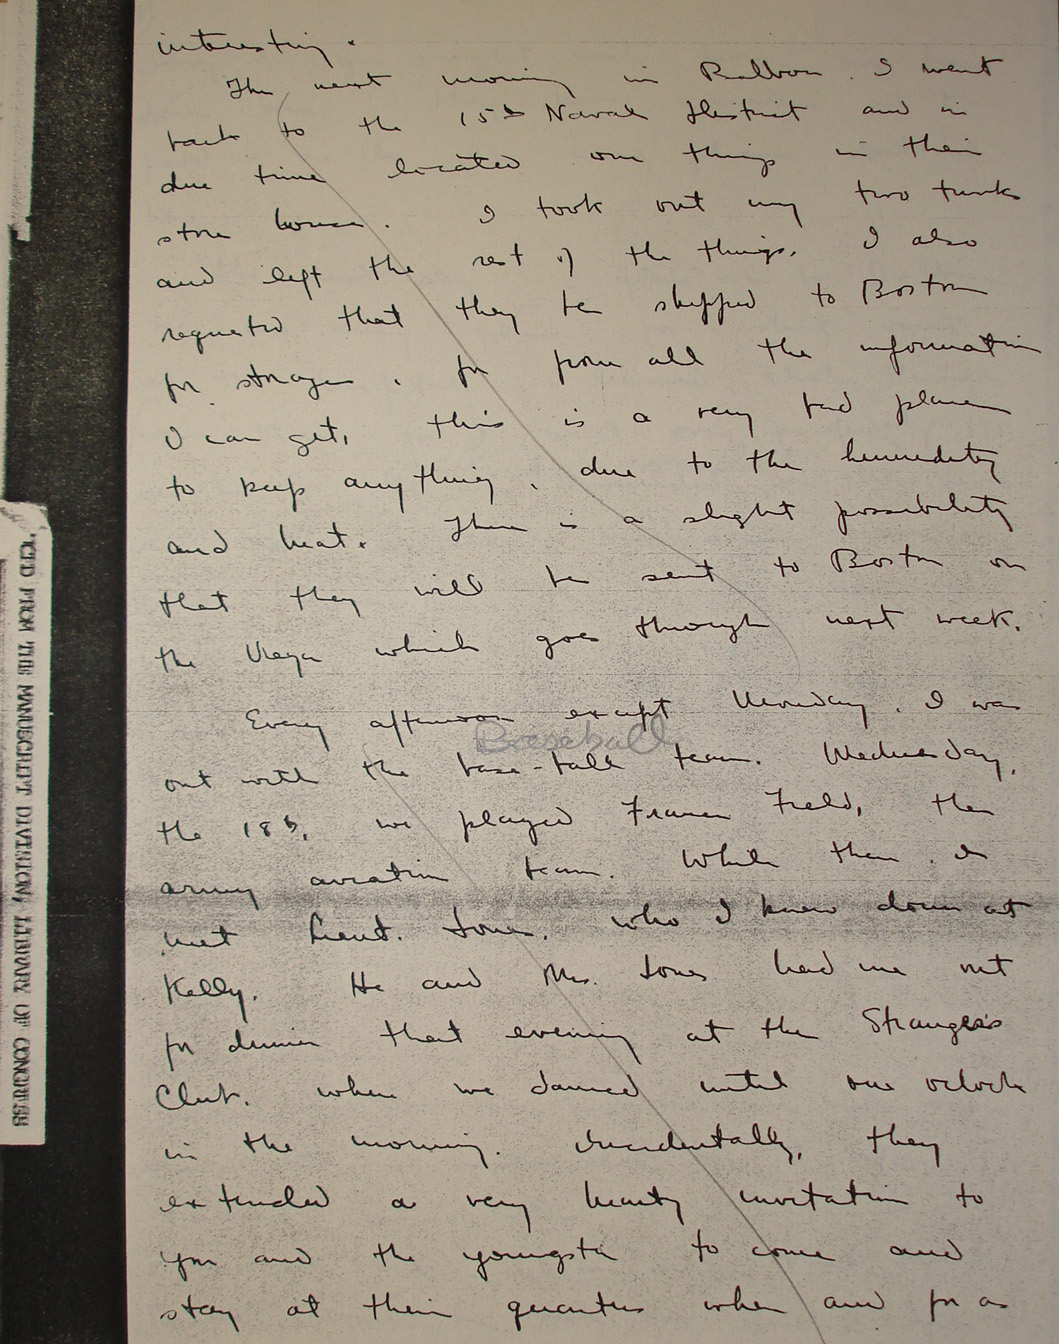 interesting.
The next morning in Balboa. I went
back to the 15th Naval District and in
due time located our things in their
store house. I took out my two trunks
and left the rest of the things. I also
requested that they be shipped to Boston
for storage, for from all the information
I can get, this is a very bad place
to keep anything, due to the humidity
and heat. There is a slight possibility
that they will be sent to Boston on
the Vega which goes through next week.
Every afternoon except Monday, I was
Baseball
out with the base-ball team. Wednesday,
the 18th, we played France Field, the
army aviation team. While there I
met Lieut. Jones, who I knew down at
Kelly. He and Mrs. Jones had me out
for dinner that evening at the Strangers
Club, where we danced until one oclock
in the morning. Incidentally, they
extended a very hearty invitation to
you and the youngster to come and
stay at their quarters when and for as
'CED FROM THE MANUSCRIPT DIVISION, LIBRARY OF CONGRESS